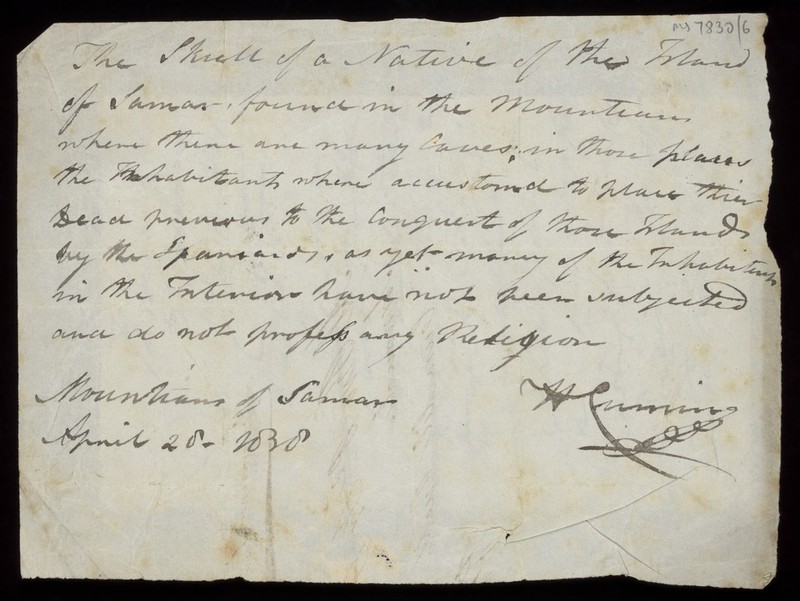 MS 7830/6
The Skull of a Native of the Island
of Samar, found in the Mountians
where there are many Caves; in those places
the Inhabitants where accustomd to place thier
Dead previous to the Conquest of those Islands
by the Spaniards, as yet many of the Inhabitents
in the Interior have not been subjected
and do not profess any Religion
Mountians of Samar
April 28- 1838
H Cuming